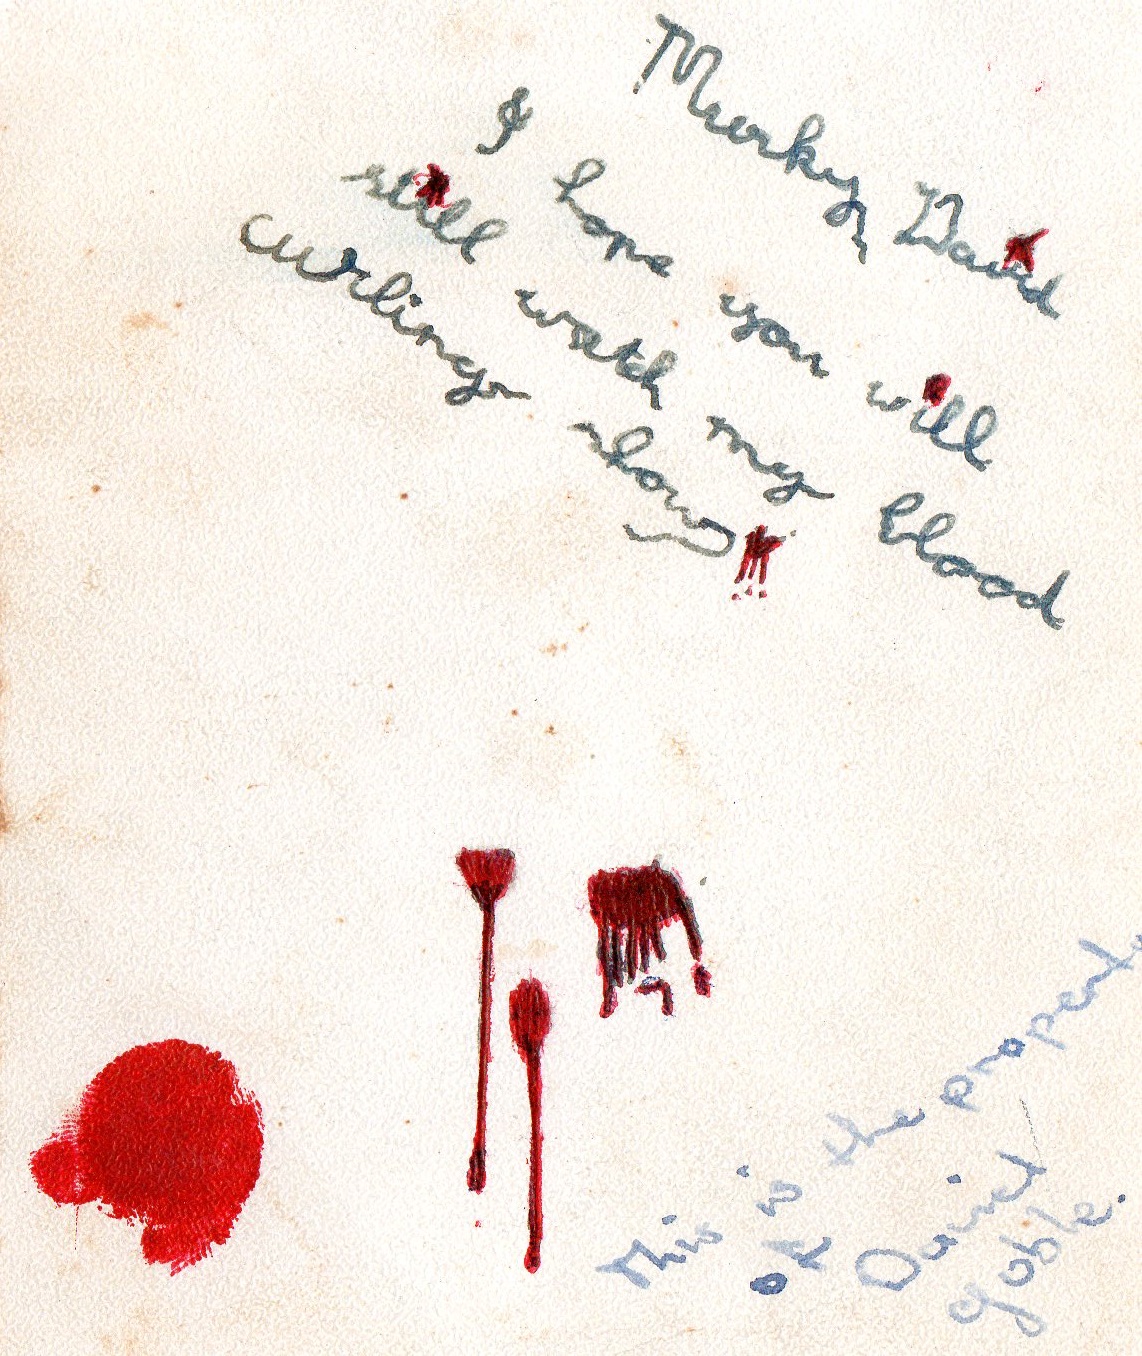 Murky David
I hope you will
still watch my blood
curling show
This is the property
of David
goble.